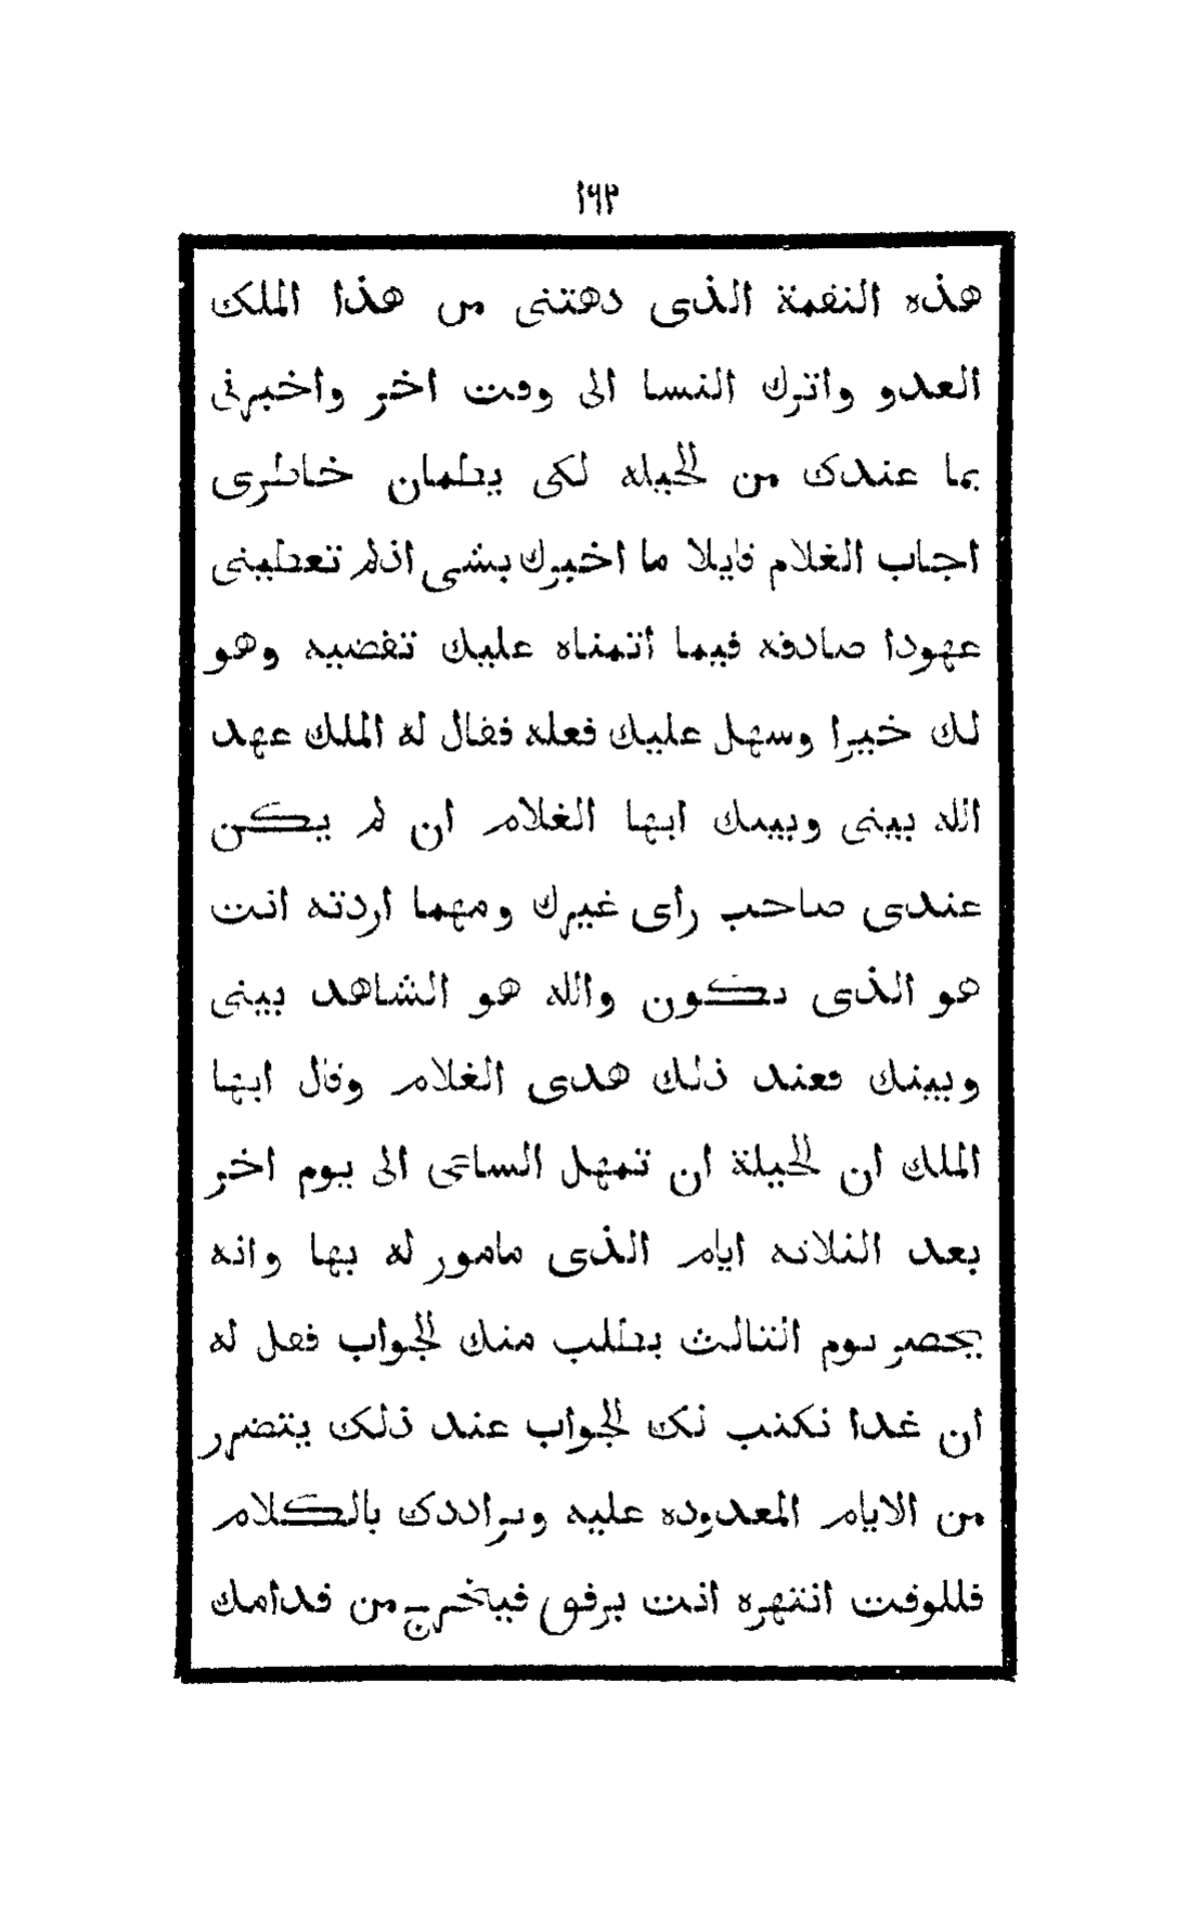 ١٩٢
هذه النقمة الذى دهتنى من هذا الملك
العدو واترك النسا الى وقت اخر واخبرنى
بما عندك من الحيله لكى يطمان خاطرى
اجاب الغلام قايلا ما اخبرك بشى اذلم تعطينى
عهودا صادقه فيما أتمناه عليك تقضيه وهو
لك خيرا وسهل عليك فعله فقال له الملك عهد
الله بينى وبينك ايها الغلام ان لم يكن
عندى صاحب رأى غيرك ومهما أردته انت
هو الذى يكون والله هو الشاهد بينى
وبينك فعند ذلك هدى الغلام وقال ايها
الملك ان الحيلة ان تمهل الساعى الى يوم اخر
بعد الثلاثه ايام الذى مامور له بها وانه
يحضر يوم الثالث يطلب منك الجواب فقل له
ان غدا نكتب لك الجواب عند ذلك يتضرر
من الايام المعدوده عليه ويراددك بالكلام
فللوقت انتهره انت برفق فيخرج من قدامك